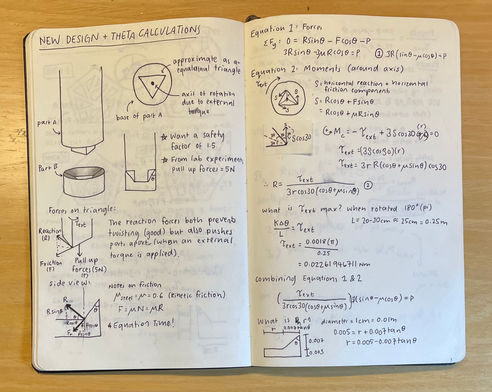 NEW DESIGN + THETA CALCULATIONS
approximate as a
equilateral triangle
axis of rotation
due to external
torque
base of part A
part A
★ Want a safety
factor of 1.5
★ From lab experiment,
pull up force = 5N
Part B
Forces on triangle:
τext
Reaction
(R)
Friction
(F)
Pull up
Forces (5N)
(P)
The reaction forces both prevent
twisting (good) but also pushes
parts apart (when an external
torque is applied).
side view:
Rsinθ
Notes on friction
μsteel = μ = 0.6 (kinetic friction)
F = μN = μR
Equation time!
Equation 1: Forces
ΣFy: 0 = Rsinθ - Fcosθ - P
3Rsinθ - 3μRcosθ = P
① 3R(sinθ - μcosθ) = P
Equation 2: Moments (around axis)
Text
S = horizontal reaction + horizontal
friction component
S = Rcosθ + Fsinθ
= Rcosθ + μRsinθ
Scos30
τext = (3Scos30)(r)
τext = 3rR(cosθ + μsinθ)cos30
∴ R = τext / 3rcos30(cosθ + μsinθ) ②
What is τext max? when rotated 180° (pi)
KΔθ / L = τext
L = 20-30cm ≈ 25cm = 0.25m
τext = 0.0018(π) / 0.25
= 0.0226194671 Nm
Combining Equations 1 & 2
(τext / 3rcos30(cosθ + μsinθ)) 3(sinθ - μcosθ) = P
What is r?
diameter = 1cm = 0.01m
r 0.007tanθ
0.007
0.003
0.005 = r + 0.007tanθ
r = 0.005 - 0.007tanθ